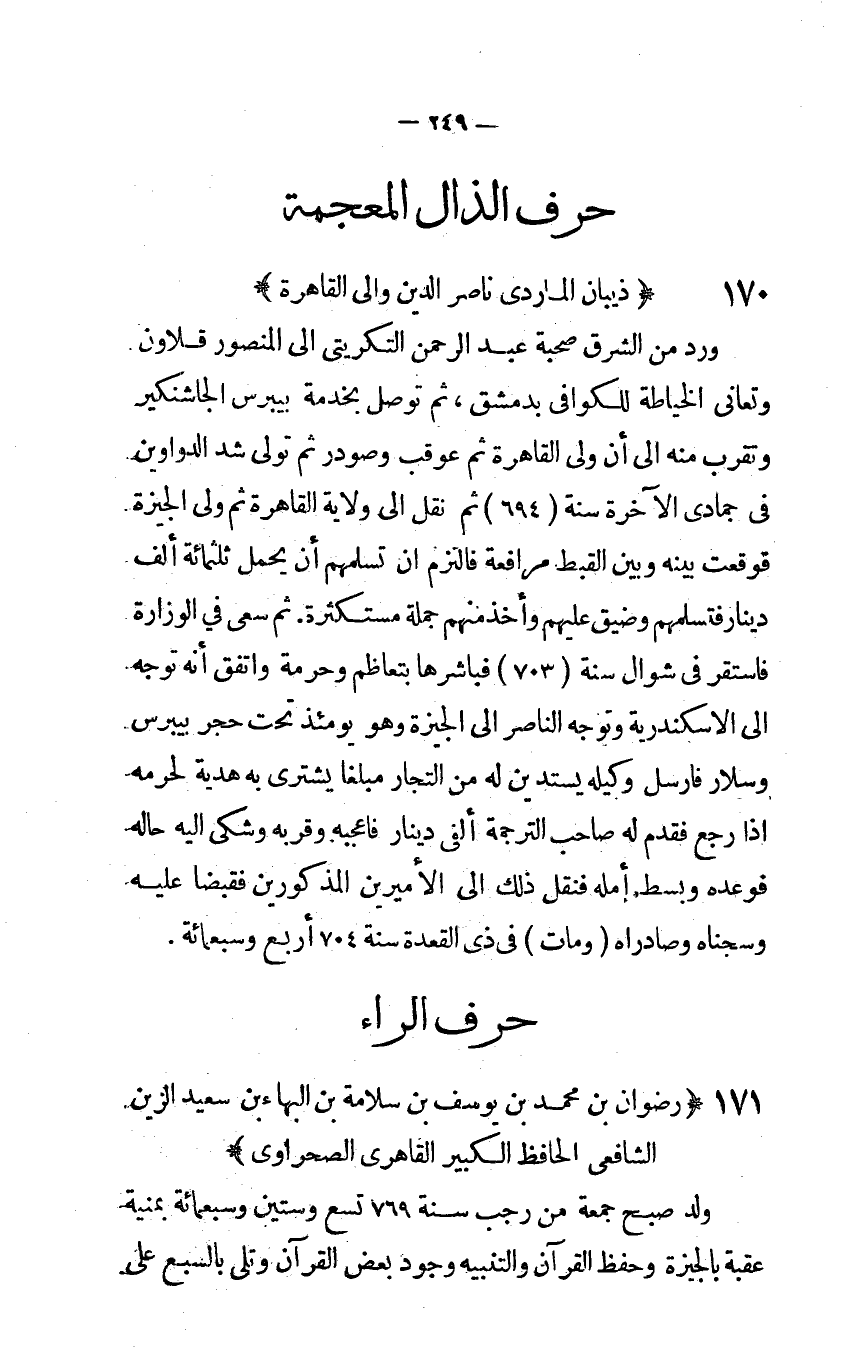 — ٢٤٩ —
حرف الذال المعجمة
١٧٠ ﴿ ذيبان الماردى ناصر الدين والى القاهرة ﴾
ورد من الشرق صحبة عبد الرحمن التكريتى الى المنصور قلاون
وتعانى الخياطة للكوافى بدمشق ، ثم توصل بخدمة بيبرس الجاشنكير
وتقرب منه الى أن ولى القاهرة ثم عوقب وصودر ثم تولى شد الدواوين
فى جمادى الآخرة سنة ( ٦٩٤ ) ثم نقل الى ولاية القاهرة ثم ولى الجيزة
فوقعت بينه وبين القبط مرافعة فالتزم ان تسلمهم أن يحمل ثلثمائة ألف
دينار فتسلمهم وضيق عليهم وأخذ منهم جملة مستكثرة. ثم سعى في الوزارة
فاستقر فى شوال سنة ( ٧٠٣ ) فباشرها بتعاظم وحرمة واتفق أنه توجه
الى الاسكندرية وتوجه الناصر الى الجيزة وهو يومئذ تحت حجر بيبرس
وسلار فارسل وكيله يستدين له من التجار مبلغا يشترى به هدية لحرمه
اذا رجع فقدم له صاحب الترجمة ألفى دينار فاعجبه وقربه وشكى اليه حاله
فوعده وبسط أمله فنقل ذلك الى الأميرين المذكورين فقبضا عليه
وسجناه وصادراه ( ومات ) فى ذى القعدة سنة ٧٠٤ أربع وسبعمائة .
حرف الراء
١٧١ ﴿ رضوان بن محمد بن يوسف بن سلامة بن البهاء بن سعيد الزين
الشافعى الحافظ الكبير القاهرى الصحراوى ﴾
ولد صبح جمعة من رجب سنة ٧٦٩ تسع وستين وسبعمائة بمنية
عقبة بالجيزة وحفظ القرآن والتنبيه وجود بعض القرآن وتلى بالسبع على